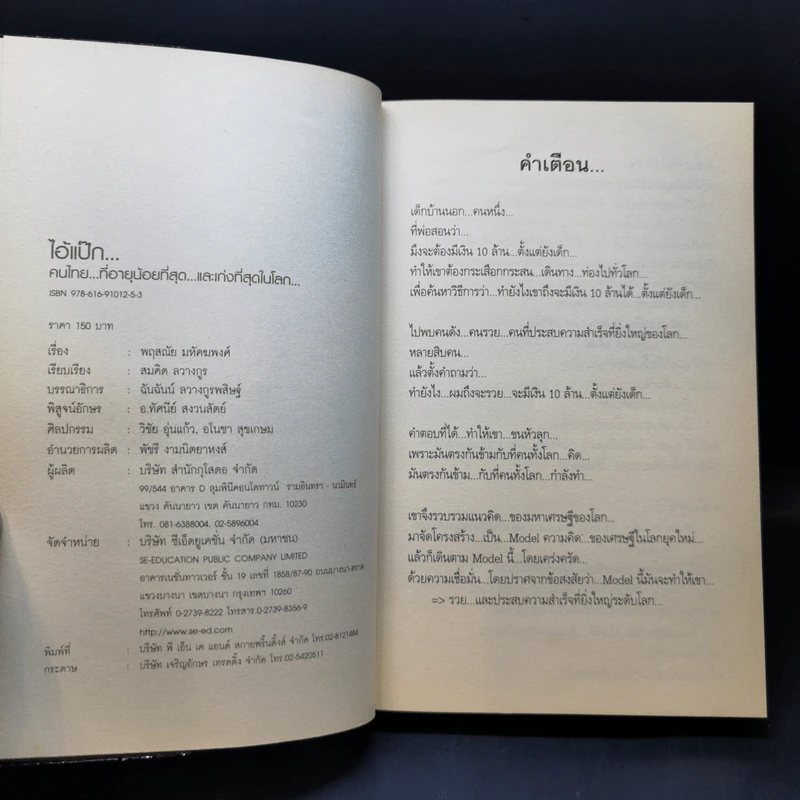 ไอ้แป๊ก...
คนไทย...ที่อายุน้อยที่สุด...และเก่งที่สุดในโลก...
ISBN 978-616-91012-5-3
ราคา 150 บาท
เรื่อง : พฤสณัย มหัคฆพงศ์
เรียบเรียง : สมคิด ลวางกูร
บรรณาธิการ : ฉันฉันน์ ลวางกูรพสิษฐ์
พิสูจน์อักษร : อ.ทัศนีย์ สงวนสัตย์
ศิลปกรรม : วิชัย อุ่นแก้ว, อโนชา สุขเกษม
อำนวยการผลิต : พัชรี งามนิตยาหงส์
ผู้ผลิต : บริษัท สำนักกุโสดอ จำกัด
99/544 อาคาร D ลุมพินีคอนโดทาวน์ รามอินทรา - นวมินทร์
แขวง คันนายาว เขต คันนายาว กทม. 10230
โทร. 081-6388004, 02-5896004
จัดจำหน่าย : บริษัท ซีเอ็ดยูเคชัน จำกัด (มหาชน)
SE-EDUCATION PUBLIC COMPANY LIMITED
อาคารเนชั่นทาวเวอร์ ชั้น 19 เลขที่ 1858/87-90 ถนนบางนา-ตราด
แขวงบางนา เขตบางนา กรุงเทพฯ 10260
โทรศัพท์ 0-2739-8222 โทรสาร.0-2739-8356-9
http://www.se-ed.com
พิมพ์ที่ : บริษัท พี เอ็น เค แอนด์ สกายพริ้นติ้งส์ จำกัด โทร.02-8121484
กระดาษ : บริษัท เจริญอักษร เทรดดิ้ง จำกัด โทร.02-5420511
คำเตือน...
เด็กบ้านนอก...คนหนึ่ง...
ที่พ่อสอนว่า...
มึงจะต้องมีเงิน 10 ล้าน...ตั้งแต่ยังเด็ก...
ทำให้เขาต้องกระเสือกกระสน...เดินทาง...ท่องไปทั่วโลก...
เพื่อค้นหาวิธีการว่า...ทำยังไงเขาถึงจะมีเงิน 10 ล้านได้...ตั้งแต่ยังเด็ก...
ไปพบคนดัง...คนรวย...คนที่ประสบความสำเร็จที่ยิ่งใหญ่ของโลก...
หลายสิบคน...
แล้วตั้งคำถามว่า...
ทำยังไง...ผมถึงจะรวย...จะมีเงิน 10 ล้าน...ตั้งแต่ยังเด็ก...
คำตอบที่ได้...ทำให้เขา...ขนหัวลุก...
เพราะมันตรงกันข้ามกับที่คนทั้งโลก...คิด...
มันตรงกันข้าม...กับที่คนทั้งโลก...กำลังทำ...
เขาจึงรวบรวมแนวคิด...ของมหาเศรษฐีของโลก...
มาจัดโครงสร้าง...เป็น...Model ความคิด...ของเศรษฐีในโลกยุคใหม่...
แล้วก็เดินตาม Model นี้...โดยเคร่งครัด...
ด้วยความเชื่อมั่น...โดยปราศจากข้อสงสัยว่า...Model นี้มันจะทำให้เขา...
=> รวย...และประสบความสำเร็จที่ยิ่งใหญ่ระดับโลก...